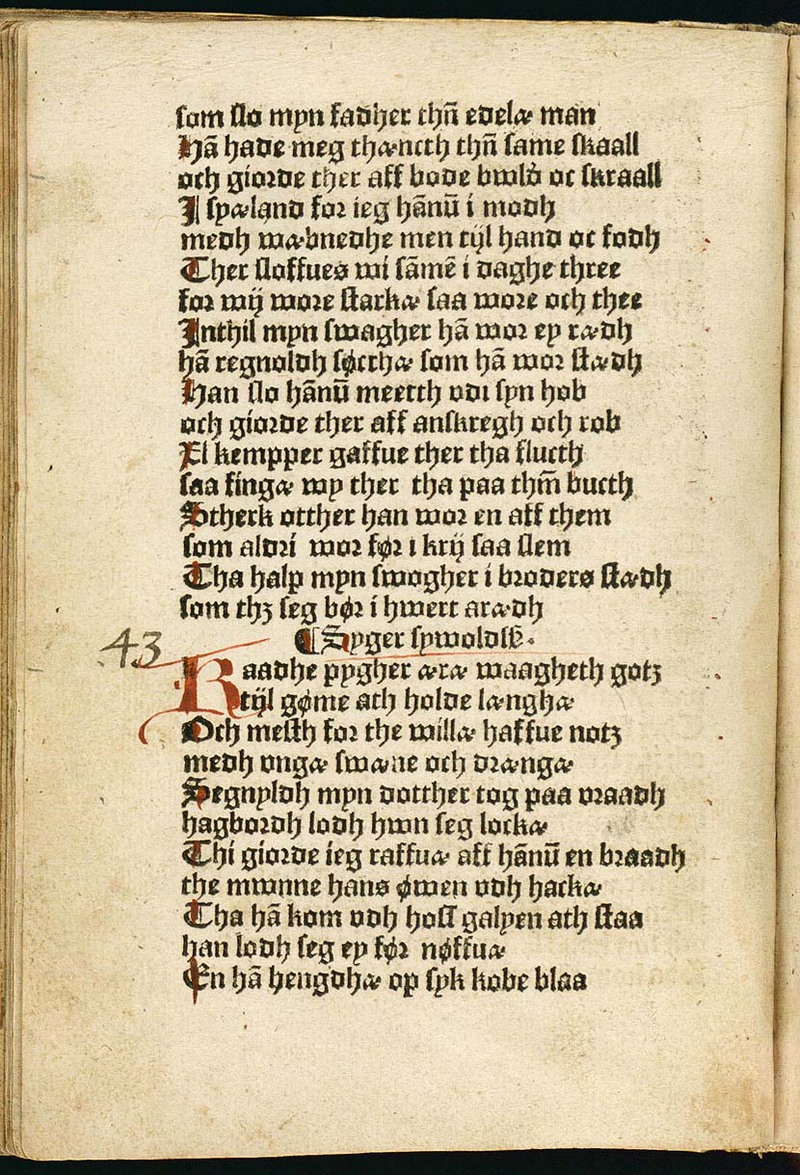 som slo myn fadher thn̄ edelæ man
Hā hade meg thæncth thn̄ same skaall
och giorde ther aff bode bwld oc skraall
J syæland for ieg hānū i modh
medh wæbnedhe men tijl hand oc fodh
Ther sloffues wi sāmē i daghe three
for wij wore starkæ saa wore och thee
Jnthil myn swagher hā wor ey rædh
hā regnoldh søcthæ som hā wor stædh
Han slo hānū meetth vdi syn hob
och giorde ther aff anskregh och rob
El kempper gaffue ther tha flucth
saa finge wy ther tha paa thm̄ bucth
Stherk otther han wor en aff them
som aldri wor før i krij saa slem
Tha halp myn swogher i broders stædh
som thꝫ seg bør i hwert arædh
¶ Syger sywoldsē.
43
Raadhe pygher æræ waagheth gotꝫ
tijl gøme ath holde længhæ
Och mesth for the willæ haffue notꝫ
medh vngæ swæne och drængæ
Segnyldh myn dotther tog paa vraadh
hagbordh lodh hwn seg lockæ
Thi giorde ieg raffuæ aff hānū en braadh
the mwnne hans øwen vdh hackæ
Tha hā kom vdh hoss galyen ath staa
han lodh seg ey før nøffuæ
En hā hengdhæ op syk kobe blaa